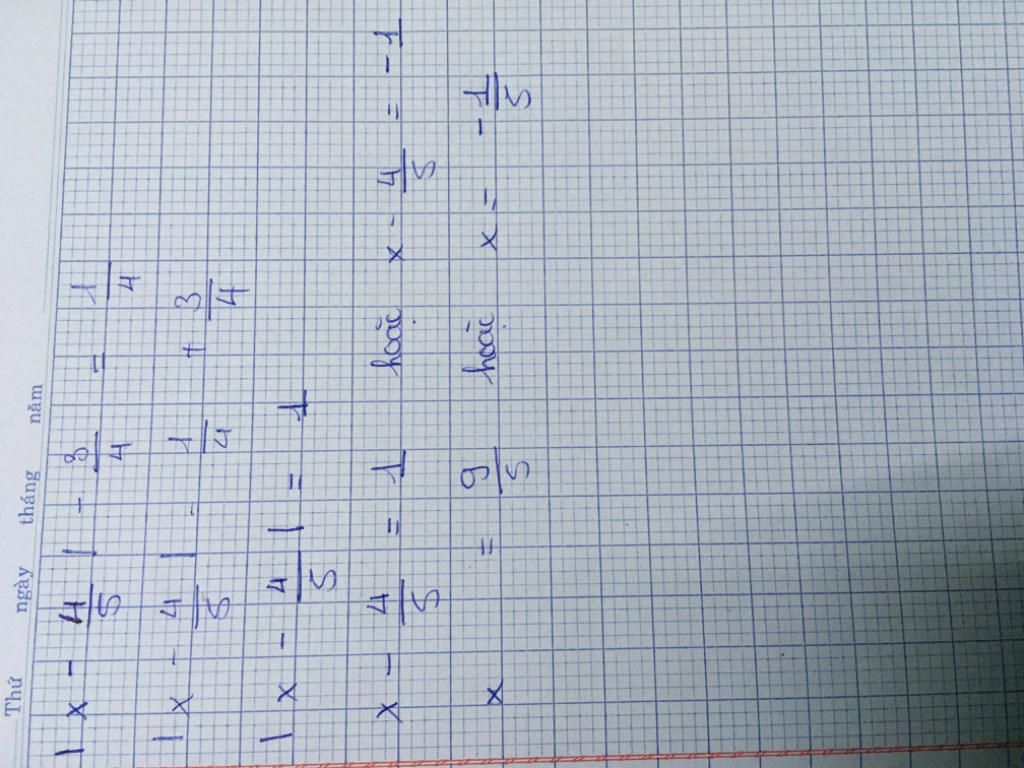 Thứ ngày tháng năm
| x - 4/5 | - 3/4 = 1/4
| x - 4/5 | - 1/4 + 3/4
| x - 4/5 | = 1
x - 4/5 = 1 hoặc x - 4/5 = -1
x = 9/5 hoặc x = -1/5